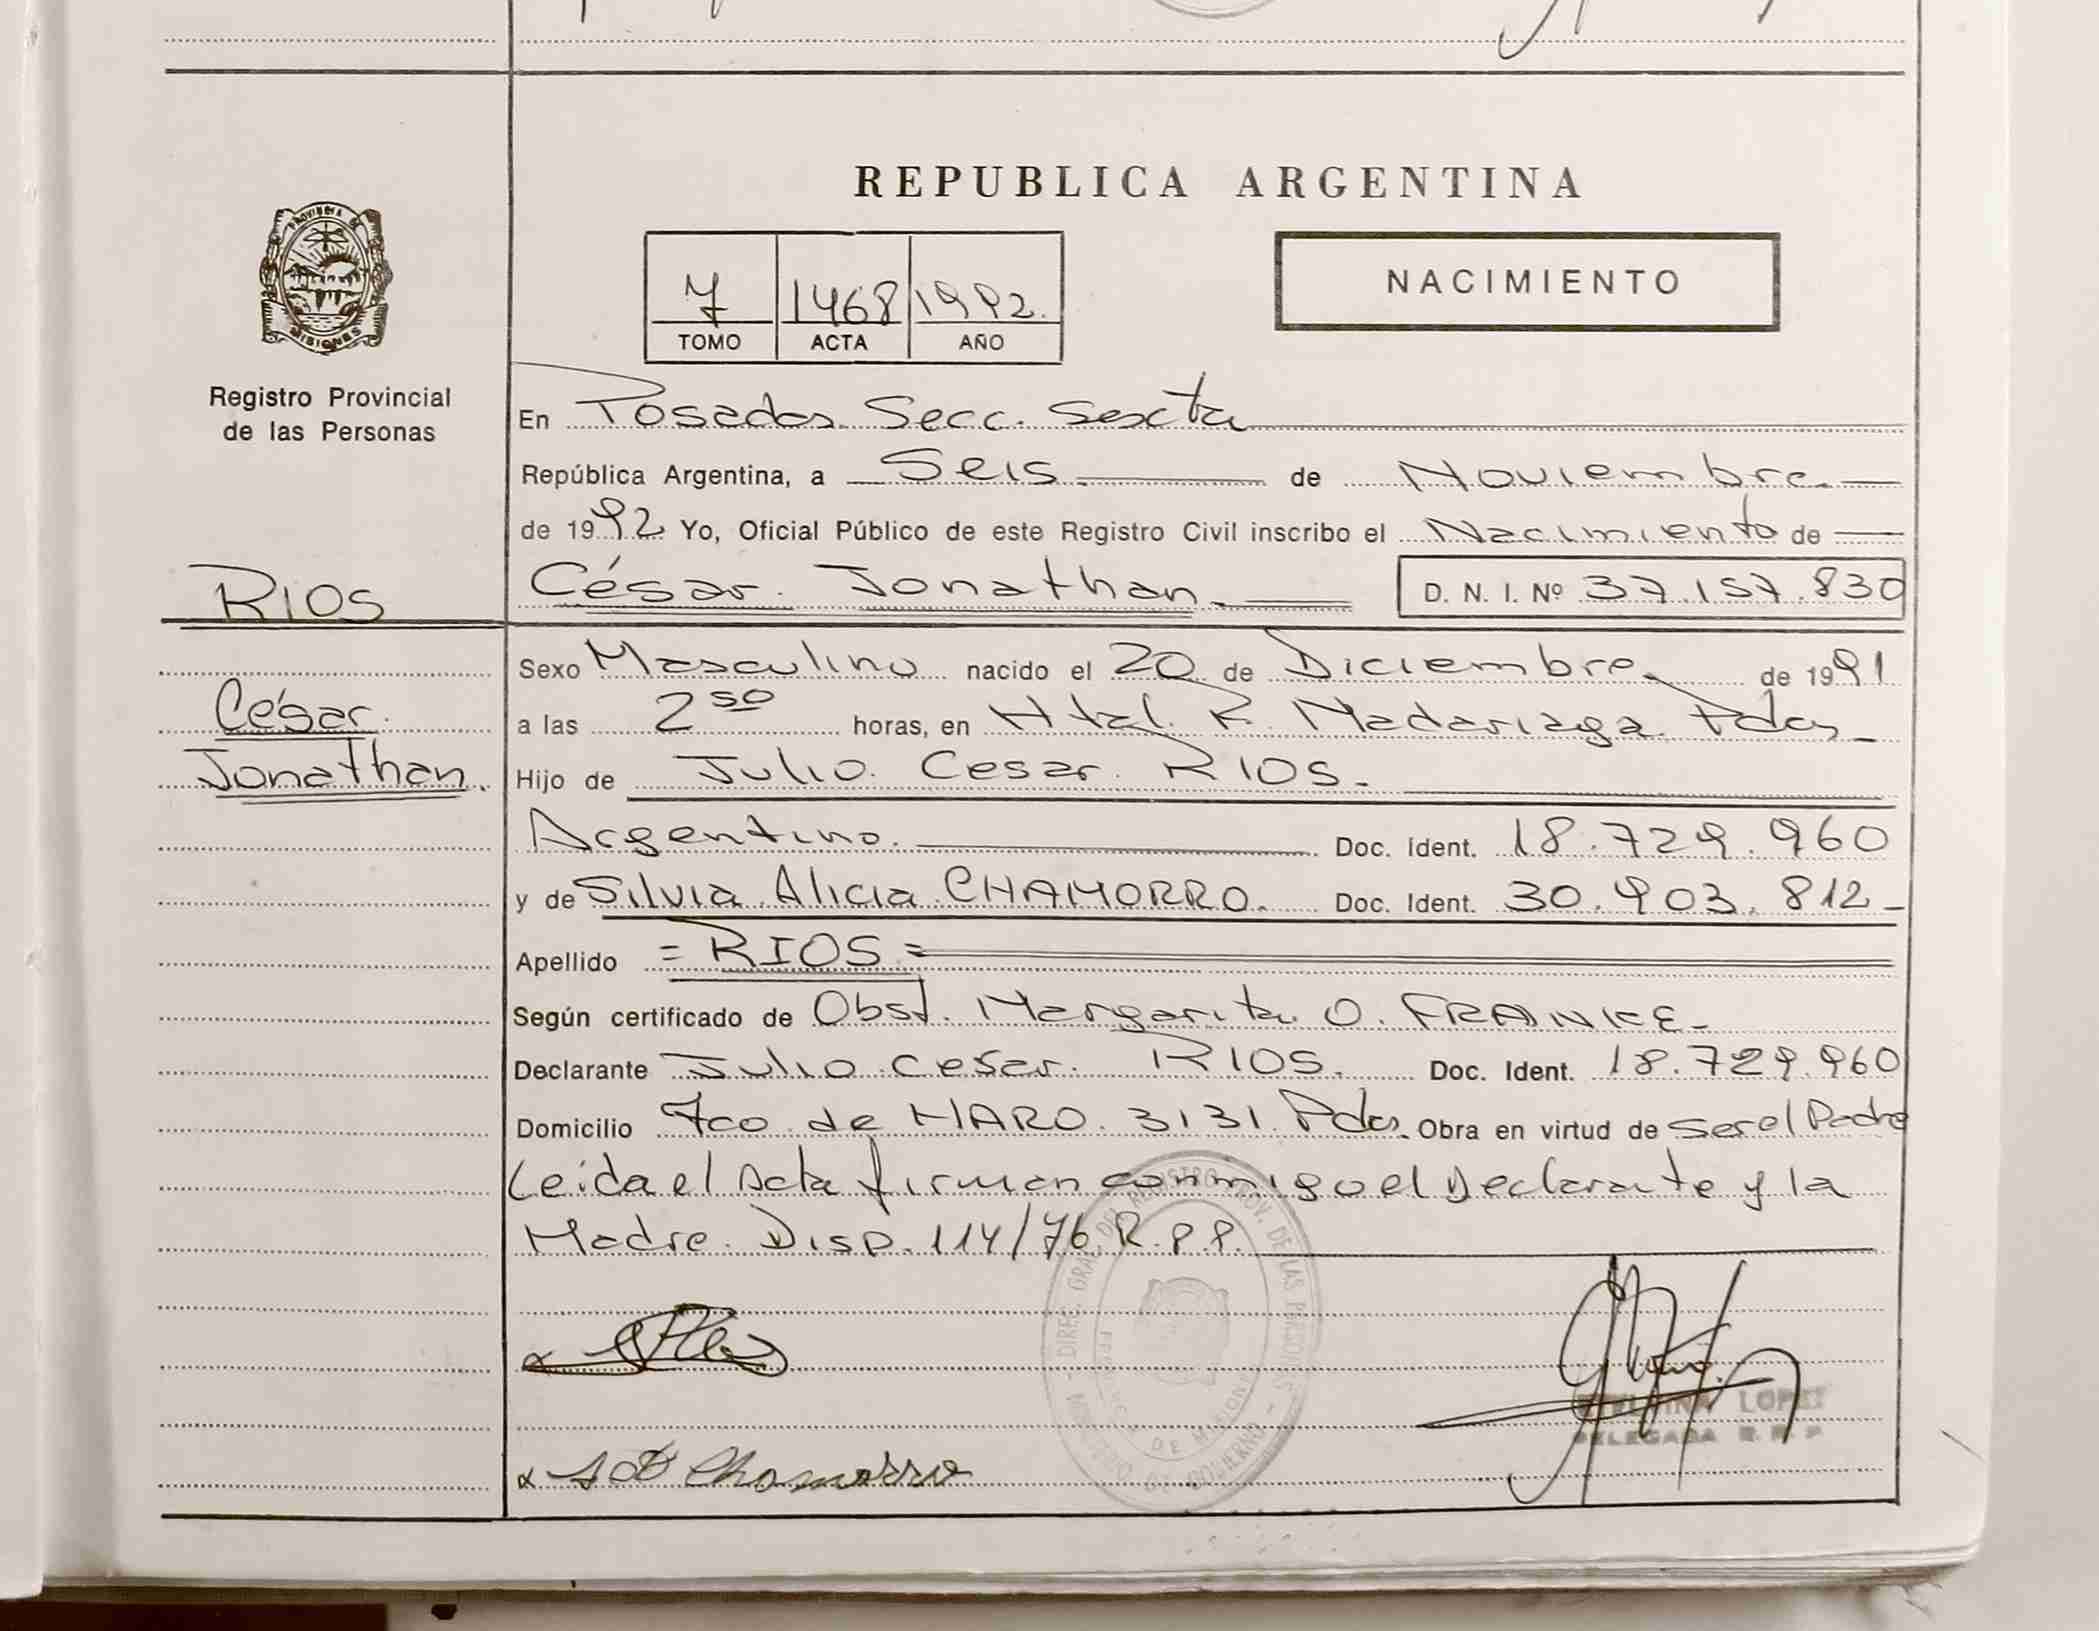 REPUBLICA ARGENTINA
PROVINCIA DE
MISIONES
Registro Provincial
de las Personas
7 1468 1992.
TOMO ACTA AÑO
NACIMIENTO
En Posadas. Secc. Sexta
República Argentina, a Seis. de Noviembre.
de 1992 Yo, Oficial Público de este Registro Civil inscribo el Nacimiento de
RIOS
César. Jonathan. D. N. I. Nº 37.157.830
Sexo Masculino nacido el 20 de Diciembre. de 1991
César.
a las 2 50 horas, en Htal. R. Madariaga. Pdas
Jonathan.
Hijo de Julio. Cesar. RIOS.
Argentino. Doc. Ident. 18.729.960
y de Silvia. Alicia. CHAMORRO. Doc. Ident. 30.903.812
Apellido = RIOS =
Según certificado de Obst. Margarita. O. FRANKE
Declarante Julio. Cesar. RIOS. Doc. Ident. 18.729.960
Domicilio Fco. de HARO. 3131. Pdas. Obra en virtud de ser el Padre
Leida el Acta firman conmigo el Declarante y la
Madre. Disp. 114/76. R.P.P.
DIREC. GRAL. DEL REGISTRO PROV. DE LAS PERSONAS
MINISTERIO DE GOBIERNO
PROVINCIA DE MISIONES
LOPEZ
DELEGADA R. P. P.
Chamorro